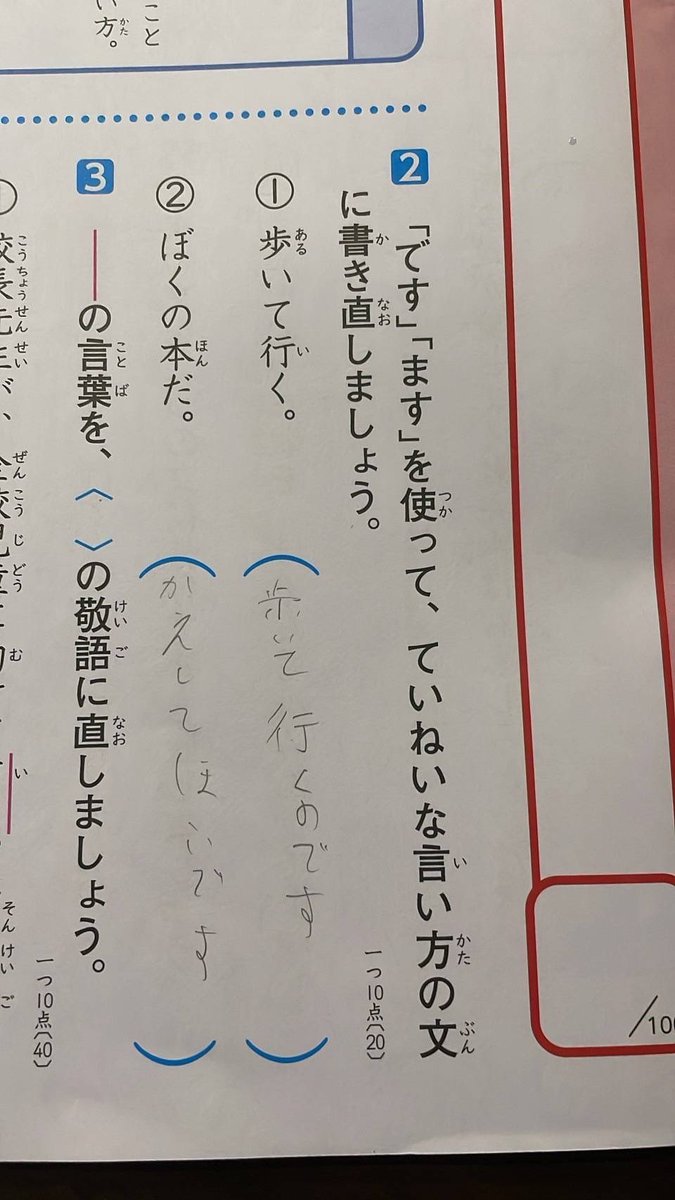 /100
2 「です」「ます」を使って、ていねいな言い方の文
に書き直しましょう。
一つ10点〔20〕
① 歩いて行く。
(歩いて行くのです)
② ぼくの本だ。
(かえしてほいです)
3 ――の言葉を、〈 〉の敬語に直しましょう。
一つ10点〔40〕
こと
い方。